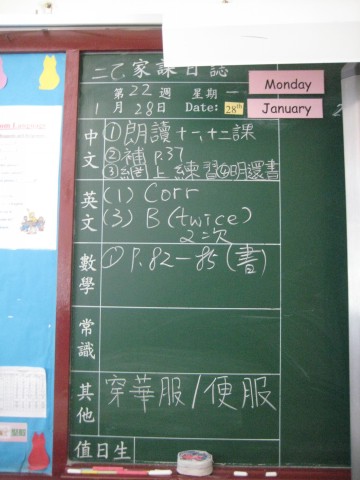 二乙家課日誌
第22週 星期一 Monday
1月28日 Date: 28th January
中文 ①朗讀十一、十二課
②補 p.37
③網上練習④明還書
英文 (1) Corr
(3) B (twice)
2次
數學 ① P.82－85 (書)
常識
其他 穿華服/便服
值日生